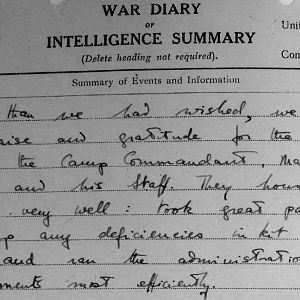 WAR DIARY
or
INTELLIGENCE SUMMARY
(Delete heading not required).
Unit
Com
Summary of Events and Information
than we had wished, we
aise and gratitude for the
the Camp Commandant, Ma
and his Staff. They hous
. very well: took great pa
p any deficiencies in kit
and ran the administratio
ments most efficiently.